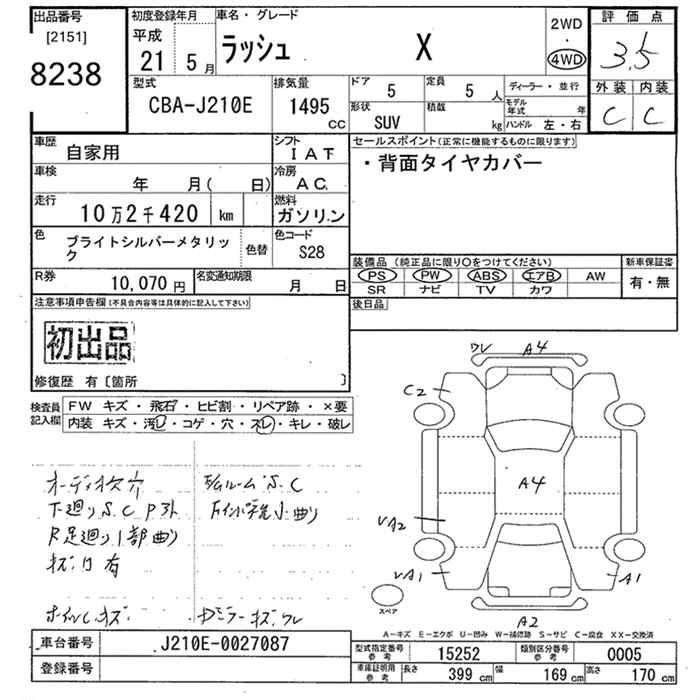 出品番号
[2151]
8238
初度登録年月
平成
21 5月
車名・グレード
ラッシュ X
2WD
・
4WD
評価点
3.5
外装 内装
C C
型式
CBA-J210E
排気量
1495
CC
ドア
5
定員
5人
形状
SUV
積載
kg
ディーラー・並行
モデル年式 年
ハンドル 左・右
車歴
自家用
シフト
IAT
車検
年 月( 日)
冷房
AC
走行
10万2千420 km
燃料
ガソリン
色
ブライトシルバーメタリック
色替
色コード
S28
R券
10,070円
名変通知期限
月 日
セールスポイント(正常に機能するものに限ります)
・背面タイヤカバー
装備品(純正品に限り○をつけてください)
PS PW ABS エアB AW
SR ナビ TV カワ
新車保証書
有・無
後日品
注意事項申告欄(不具合内容等は具体的に記入して下さい)
初出品
修復歴 有〔箇所 〕
検査員記入欄
FW キズ・飛石・ヒビ割・リペア跡・×要
内装 キズ・汚レ・コゲ・穴・スレ・キレ・破レ
オーディオ欠
下廻りS.C
足廻り1部曲り
キズ 有
ホイルキズ
ルームS.C
小曲り
ミラーキズ
A4
C2
A4
A2
A1
A1
A2
スペア
A－キズ E－エクボ U－凹み W－補修跡 S－サビ C－腐食 XX－交換済
車台番号
J210E-0027087
登録番号
型式指定番号
参考
15252
類別区分番号
参考
0005
車庫証明用
参考
長さ 399 cm
幅 169 cm
高さ 170 cm